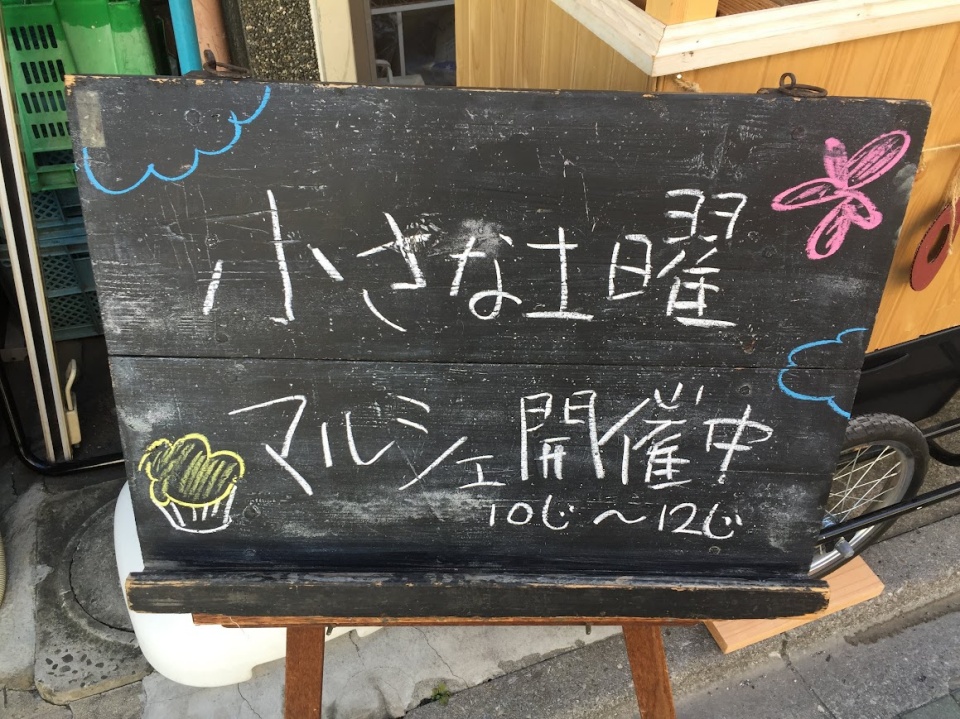 小さな土曜
マルシェ開催中
10じ～12じ